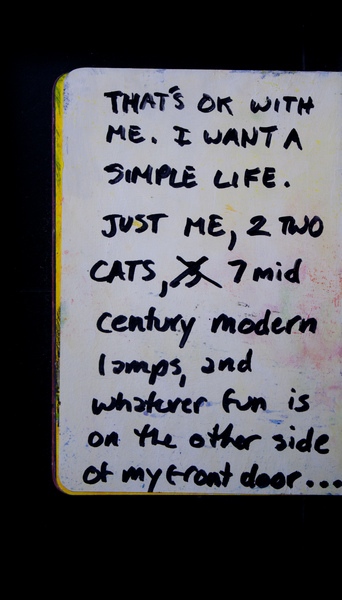 THAT'S OK WITH
ME. I WANT A
SIMPLE LIFE.
JUST ME, 2 TWO
CATS, 7 mid
century modern
lamps, and
whatever fun is
on the other side
of my front door...